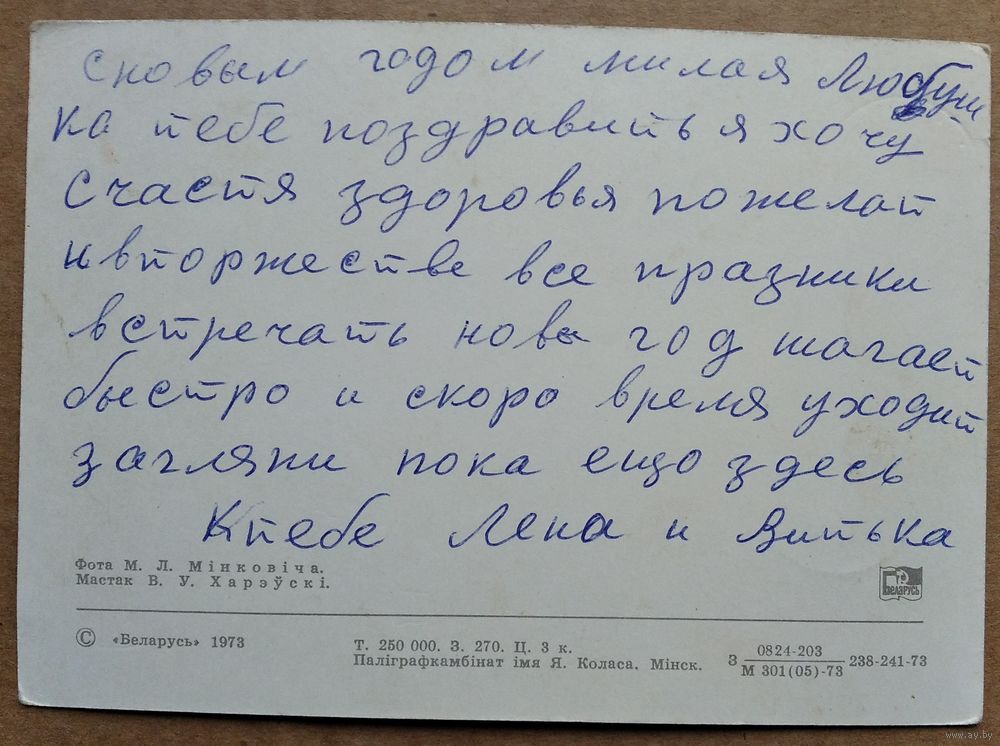 сновым годом милая Любуш
ка тебе поздравить я хочу
счастя здоровья пожелат
и вторжестве все празники
встречать нова год шагает
быстро и скоро время уходит
загляни пока ещо здесь
К тебе Лена и Витька
Фота М. Л. Мінковіча.
Мастак В. У. Харэўскі.
Беларусь
© «Беларусь» 1973
Т. 250 000. З. 270. Ц. 3 к.
Паліграфкамбінат імя Я. Коласа. Мінск.
З 0824-203 / М 301(05)-73 238-241-73
www.ay.by